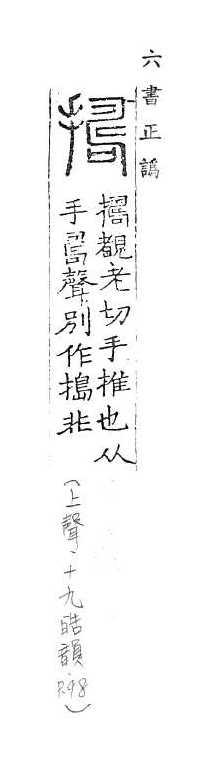 六書正譌
覩老切手推也从
手聲別作搗非
(上聲.十九皓韻.P.98)